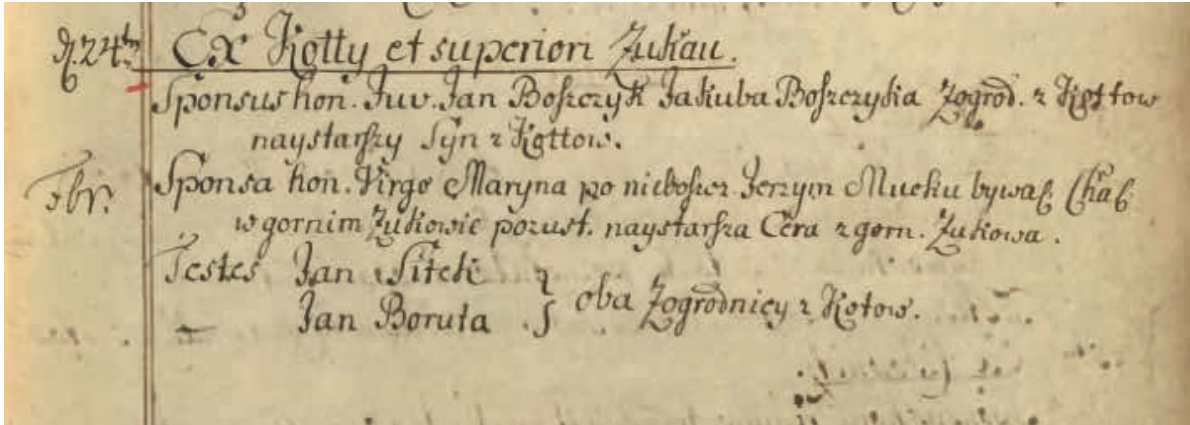 d. 24ten Ex Kotty et superiori Zukau.
Sponsus hon. Juv. Jan Boszczyk Jakuba Boszczyka Zogrod. z Kottow
naystarszy Syn z Kottow.
Febr. Sponsa hon. Virgo Maryna po nieboszcz. Jerzym Mucku bywał. Chał.
w gornim Zukowie pozust. naystarsza Cera z gorn. Zukowa.
Testes Jan Sitek
— Jan Boruta } oba Zogrodnicy z Kotow.